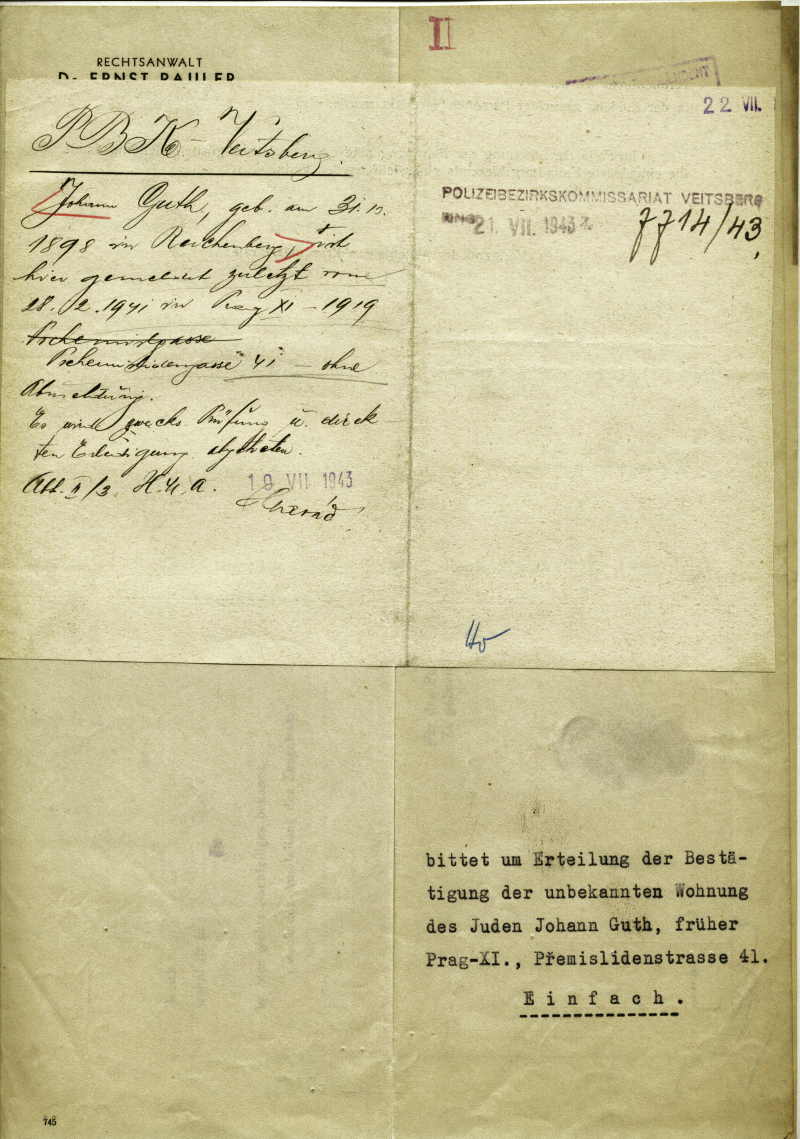 II
RECHTSANWALT
Dr. ERNST
22 VII.
P B K - Veitsberg.
Johann Guth, geb. am 31.
1898 in Reichenberg, ist
hier gemeldet zuletzt vom
28. 2. 1941 in Prag XI - 1919
41 - ohne
Abmeldung.
Es wird zwecks Prüfung u. direk-
ten Erledigung abgetreten.
Abt. II/3
19 VII 1943
POLIZEIBEZIRKSKOMMISSARIAT VEITSBERG
21. VII. 1943
7714/43
bittet um Erteilung der Bestä-
tigung der unbekannten Wohnung
des Juden Johann Guth, früher
Prag-XI., Přemislidenstrasse 41.
Einfach.
745